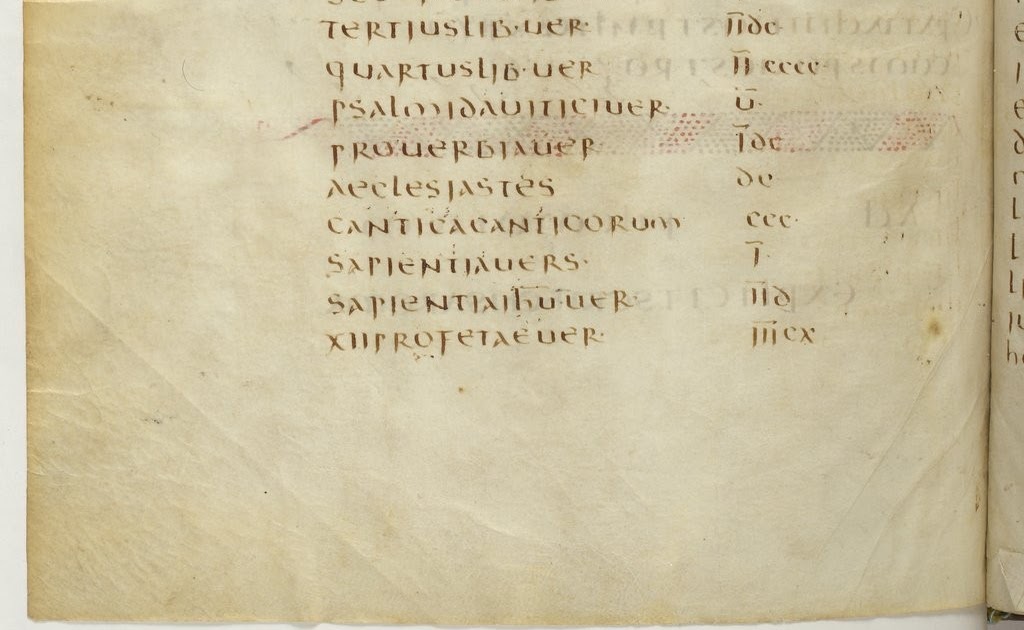 TERTIUSLIB·UER· ĪĪDC
QUARTUSLIB·UER ĪĪ CCCC
PSALMIDAUITICIUER· Ū·
PROUERBIAUER· ĪDC
AECLESIASTES DC
CANTICACANTICORUM CCC·
SAPIENTIAUERS· Ī·
SAPIENTIAIHŪUER· ĪĪD
XIIPROFETAEUER· ĪĪĪCX